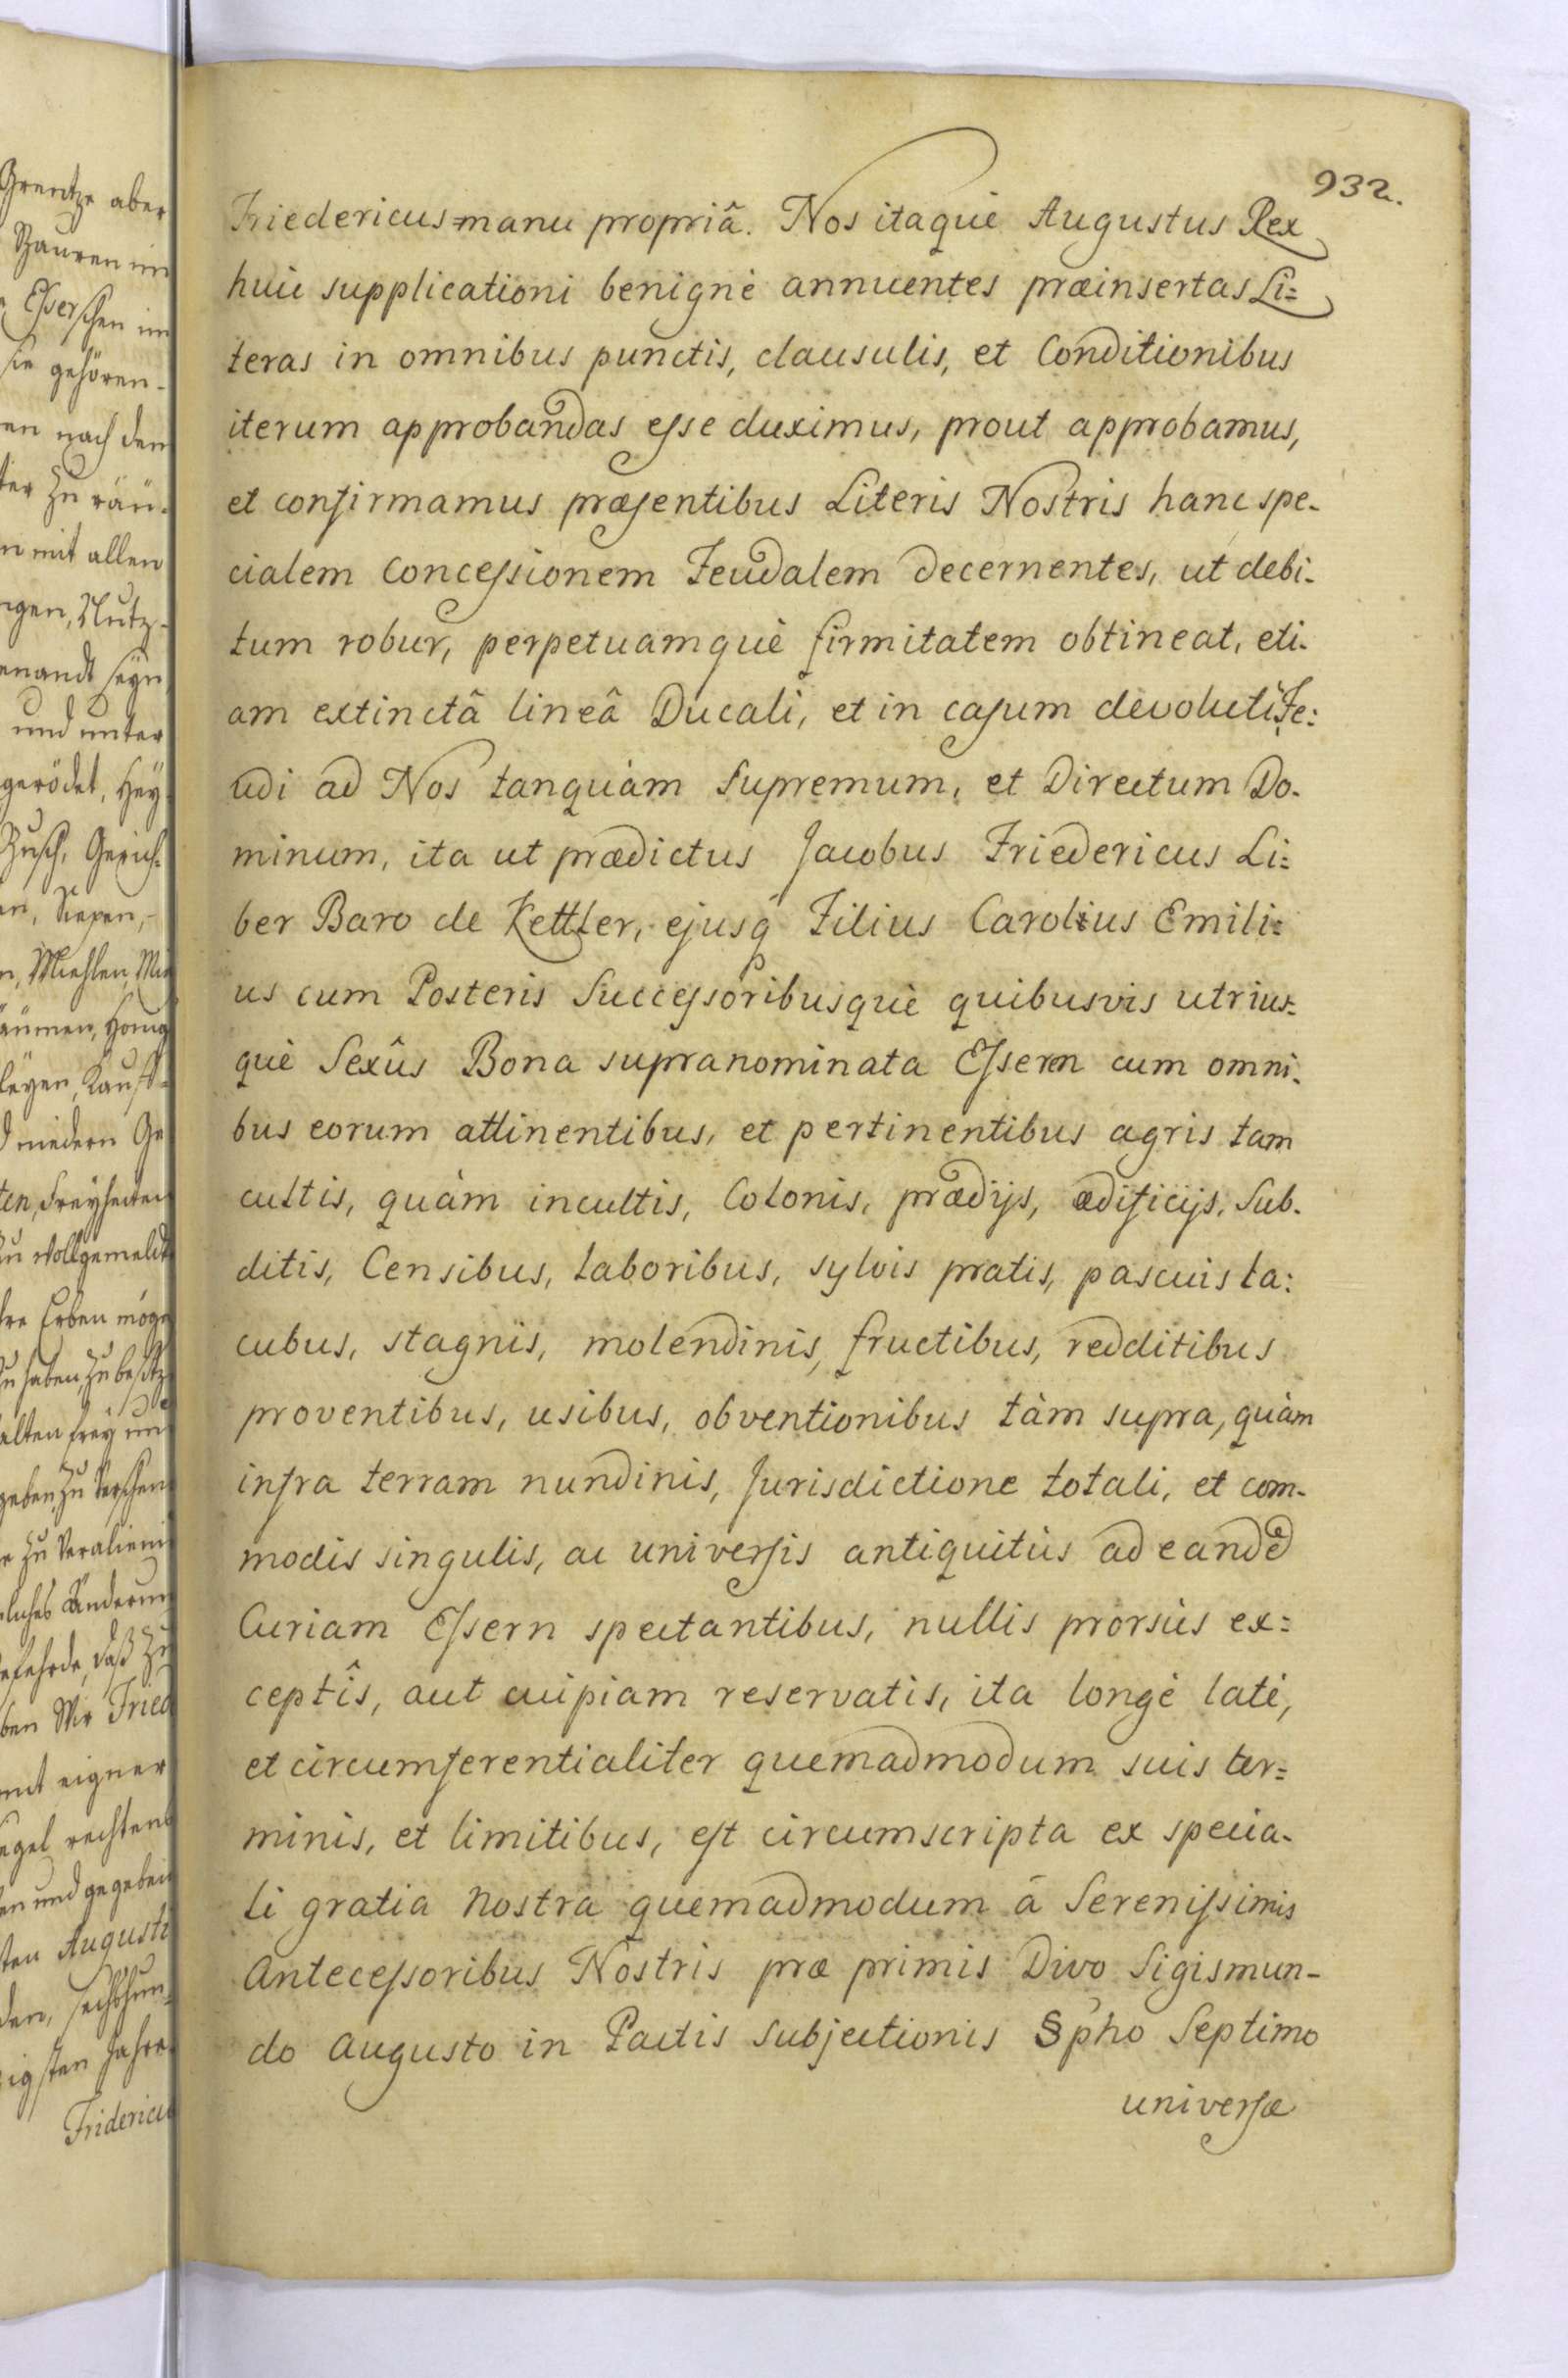 932.
Friedericus=manu propriâ. Nos itaquè Augustus Rex
huic supplicationi benignè annuentes præinsertas Li=
teras in omnibus punctis, clausulis, et Conditionibus
iterum approbandas eſse duximus, prout approbamus,
et confirmamus præſentibus Literis Nostris hanc spe-
cialem Conceſsionem Feudalem decernentes, ut debi-
tum robur, perpetuamquè firmitatem obtineat, eti-
am extinctâ lineâ Ducali, et in caſum devoluti Fe:
udi ad Nos tanquàm Supremum, et Directum Do-
minum, ita ut prædictus Jacobus Friedericus Li=
ber Baro de Kettler, ejusq̃ Filius Carolus Emili=
us cum Posteris Succeſsoribusquè quibusvis utrius-
què Sexûs Bona supranominata Eſsern cum omni-
bus eorum attinentibus, et pertinentibus agris tam
cultis, quàm incultis, Colonis, prædijs, ædificijs, Sub-
ditis, Censibus, laboribus, sylvis pratis, pascuis la:
cubus, stagnis, molendinis, fructibus, redditibus
proventibus, usibus, obventionibus tàm supra, quàm
infra terram nundinis, Jurisdictione totali, et com-
modis singulis, ac univerſis antiquitùs ad eandē
Curiam Eſsern spectantibus, nullis prorsùs ex=
ceptîs, aut cuipiam reservatis, ita longè latè,
et circumferentialiter quemadmodum suis ter=
minis, et limitibus, eſt circumscripta ex specia-
li gratia Nostra quemadmodum â Sereniſsimis
Anteceſsoribus Nostris præ primis Divo Sigismun-
do Augusto in Pactis Subjectionis §pho Septimo
univerſæ
Grentze aber
Eſserschen im
sie gehören-
en nach den
ter zu räu-
n mit allen
ngen, Nutz-
enandt seyn
und unter
gerödet, Hey
Busch, Gerich-
n, Miehlen,
äumen, Honig
d niedern Ge
ten, Freyheiten
zu Wollgemeldt
hre Erben möge
zu haben, zu besitz
alten frey un
geben, zu verschen
e zu Veralieni
efehrde, daß Zu
ben Wir Fried
mit eigner
egel rechtens
en und gegeben
ten Augusti
den, sechshun-
igsten Jahre.
Fridericus